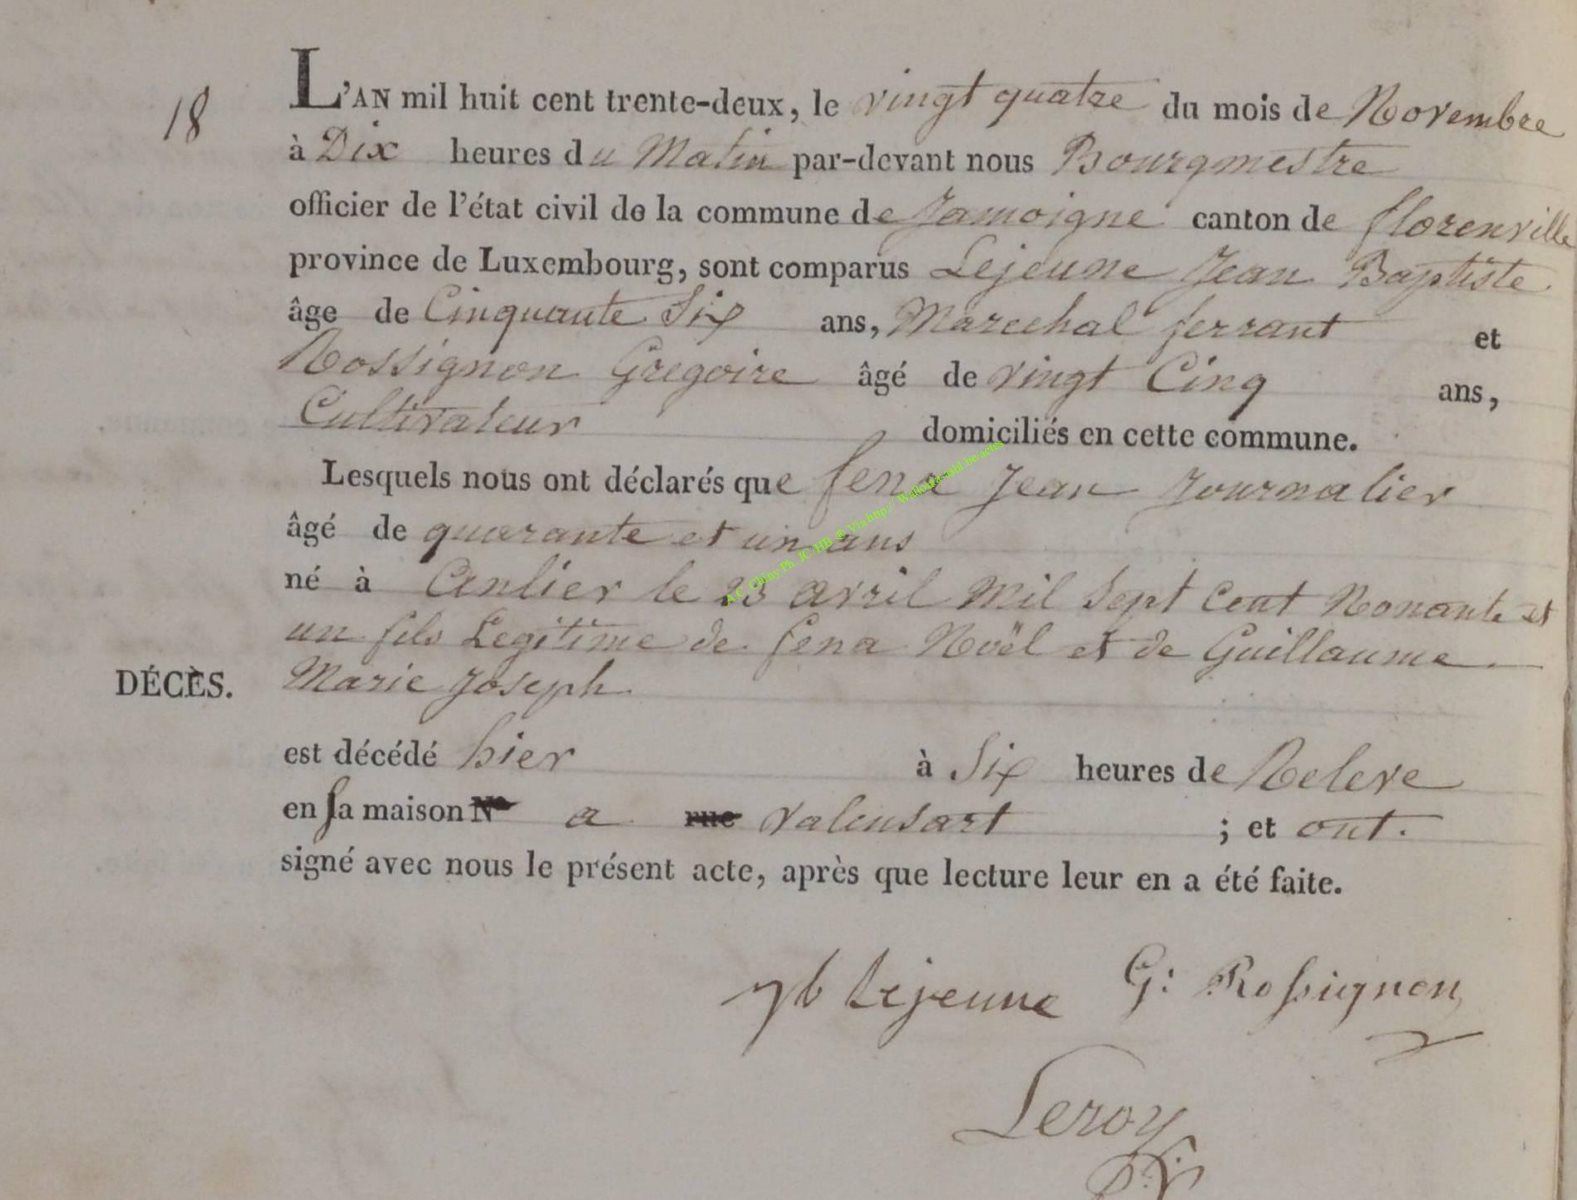 18
L'AN mil huit cent trente-deux, le vingt quatre du mois de Novembre
à Dix heures du Matin par-devant nous Bourgmestre
officier de l'état civil de la commune de Jamoigne canton de florenville
province de Luxembourg, sont comparus Lejeune Jean Baptiste
âge de Cinquante Six ans, Marechal ferrant et
Rossignon Gregoire âgé de vingt Cinq ans,
Cultivateur domiciliés en cette commune.
Lesquels nous ont déclarés que fena Jean Journalier
âgé de quarante et un ans
né à Anlier le 23 avril Mil Sept Cent Nonante et
un fils Legitime de fena Noël et de Guillaume
DÉCÈS. Marie Joseph
est décédé hier à Six heures de Releve
en sa maison a valensart ; et ont.
signé avec nous le présent acte, après que lecture leur en a été faite.
Lejeune G: Rossignon
Leroy